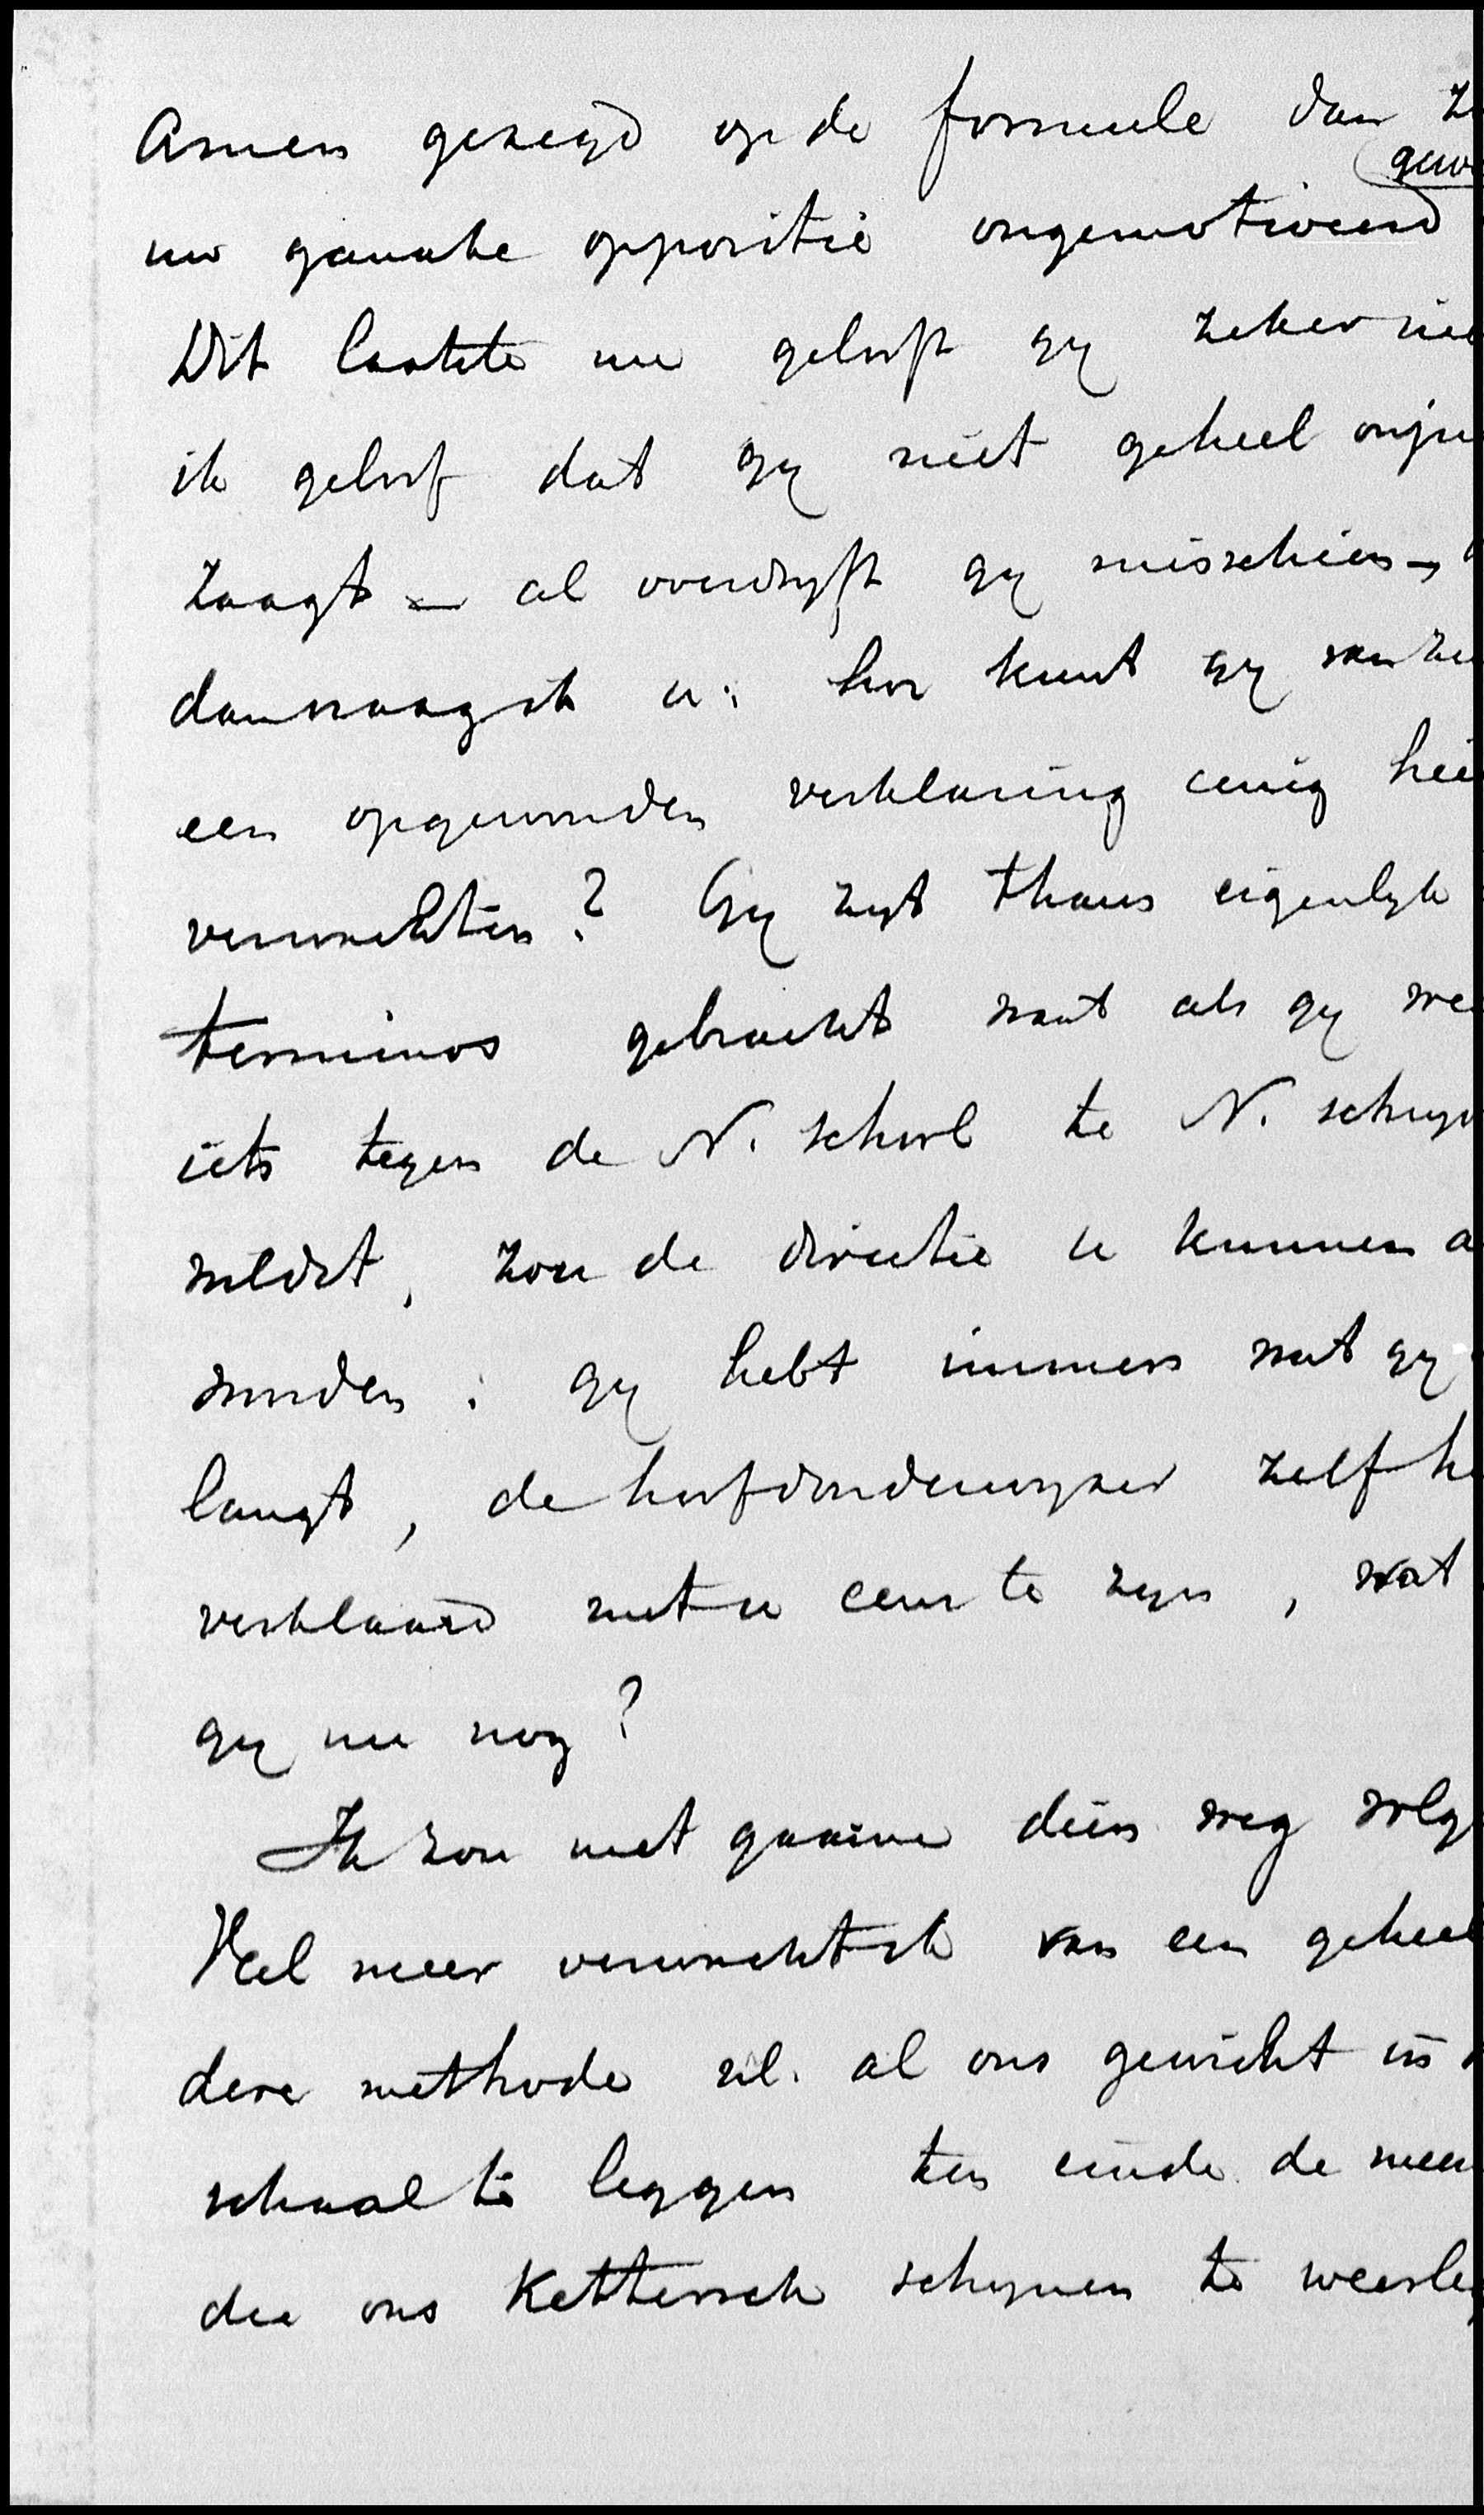 Amen gezegd op de formule dan z
gew
uw gansche oppositie ongemotiveerd
Dit laatste nu gelooft gy zeker nie
ik geloof dat gy niet geheel onju
zaagt – al overdryft gy misschien –
dan vraag ik u: hoe kunt gy van zu
een opgewonden verklaring eenig hei
verwachten? Gy zyt thans eigenlyk
terminos gebracht want als gy we
iets tegen de N. school te N. schryv
wildet, zou de directie u kunnen a
woorden: gy hebt immers wat gy
langt, de hoofdonderwyzer zelf h
verklaard met u eens te zyn, wat
gy nu nog?
Ik zou niet gaarne dien weg volg
Veel meer verwacht ik van een geheel
dere methode nl. al ons gewicht in
schaal te leggen ten einde de meen
die ons Kettersch schynen te weerle